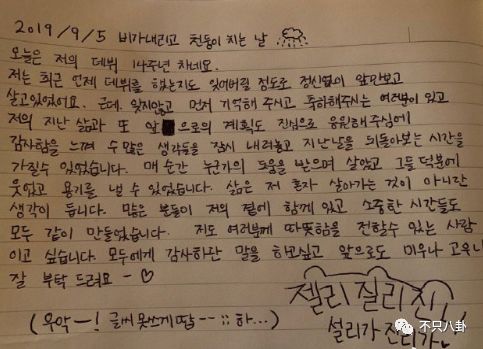 2019/9/5 비가내리고 천둥이 치는 날
오늘은 저의 데뷔 14주년 차네요.
저는 최근 언제 데뷔를 했는지도 잊어버릴 정도로 정신없이 앞만보고
살고있었어요. 근데, 잊지않고 먼저 기억해 주시고 축하해주시는 여러분이 있고
저의 지난 삶과 또 앞으로의 계획도 진심으로 응원해주심에
감사함을 느껴 수 많은 생각들을 잠시 내려놓고 지난날을 뒤돌아보는 시간을
가질수 있었습니다. 매 순간 누군가의 도움을 받으며 살았고 그들 덕분에
웃었고 용기를 낼 수 있었습니다. 삶은 저 혼자 살아가는 것이 아니란
생각이 듭니다. 많은 분들이 저의 곁에 함께 있고 소중한 시간들도
모두 같이 만들었습니다. 저도 여러분께 따뜻함을 전할수 있는 사람
이고 싶습니다. 모두에게 감사하단 말을 하고싶고 앞으로도 미우나 고우나
잘 부탁 드려요 ~ ♡
젤리 질리 진
설리가 진리가
(우악-! 글씨 못쓰게땁--;; 하...)
不只八卦